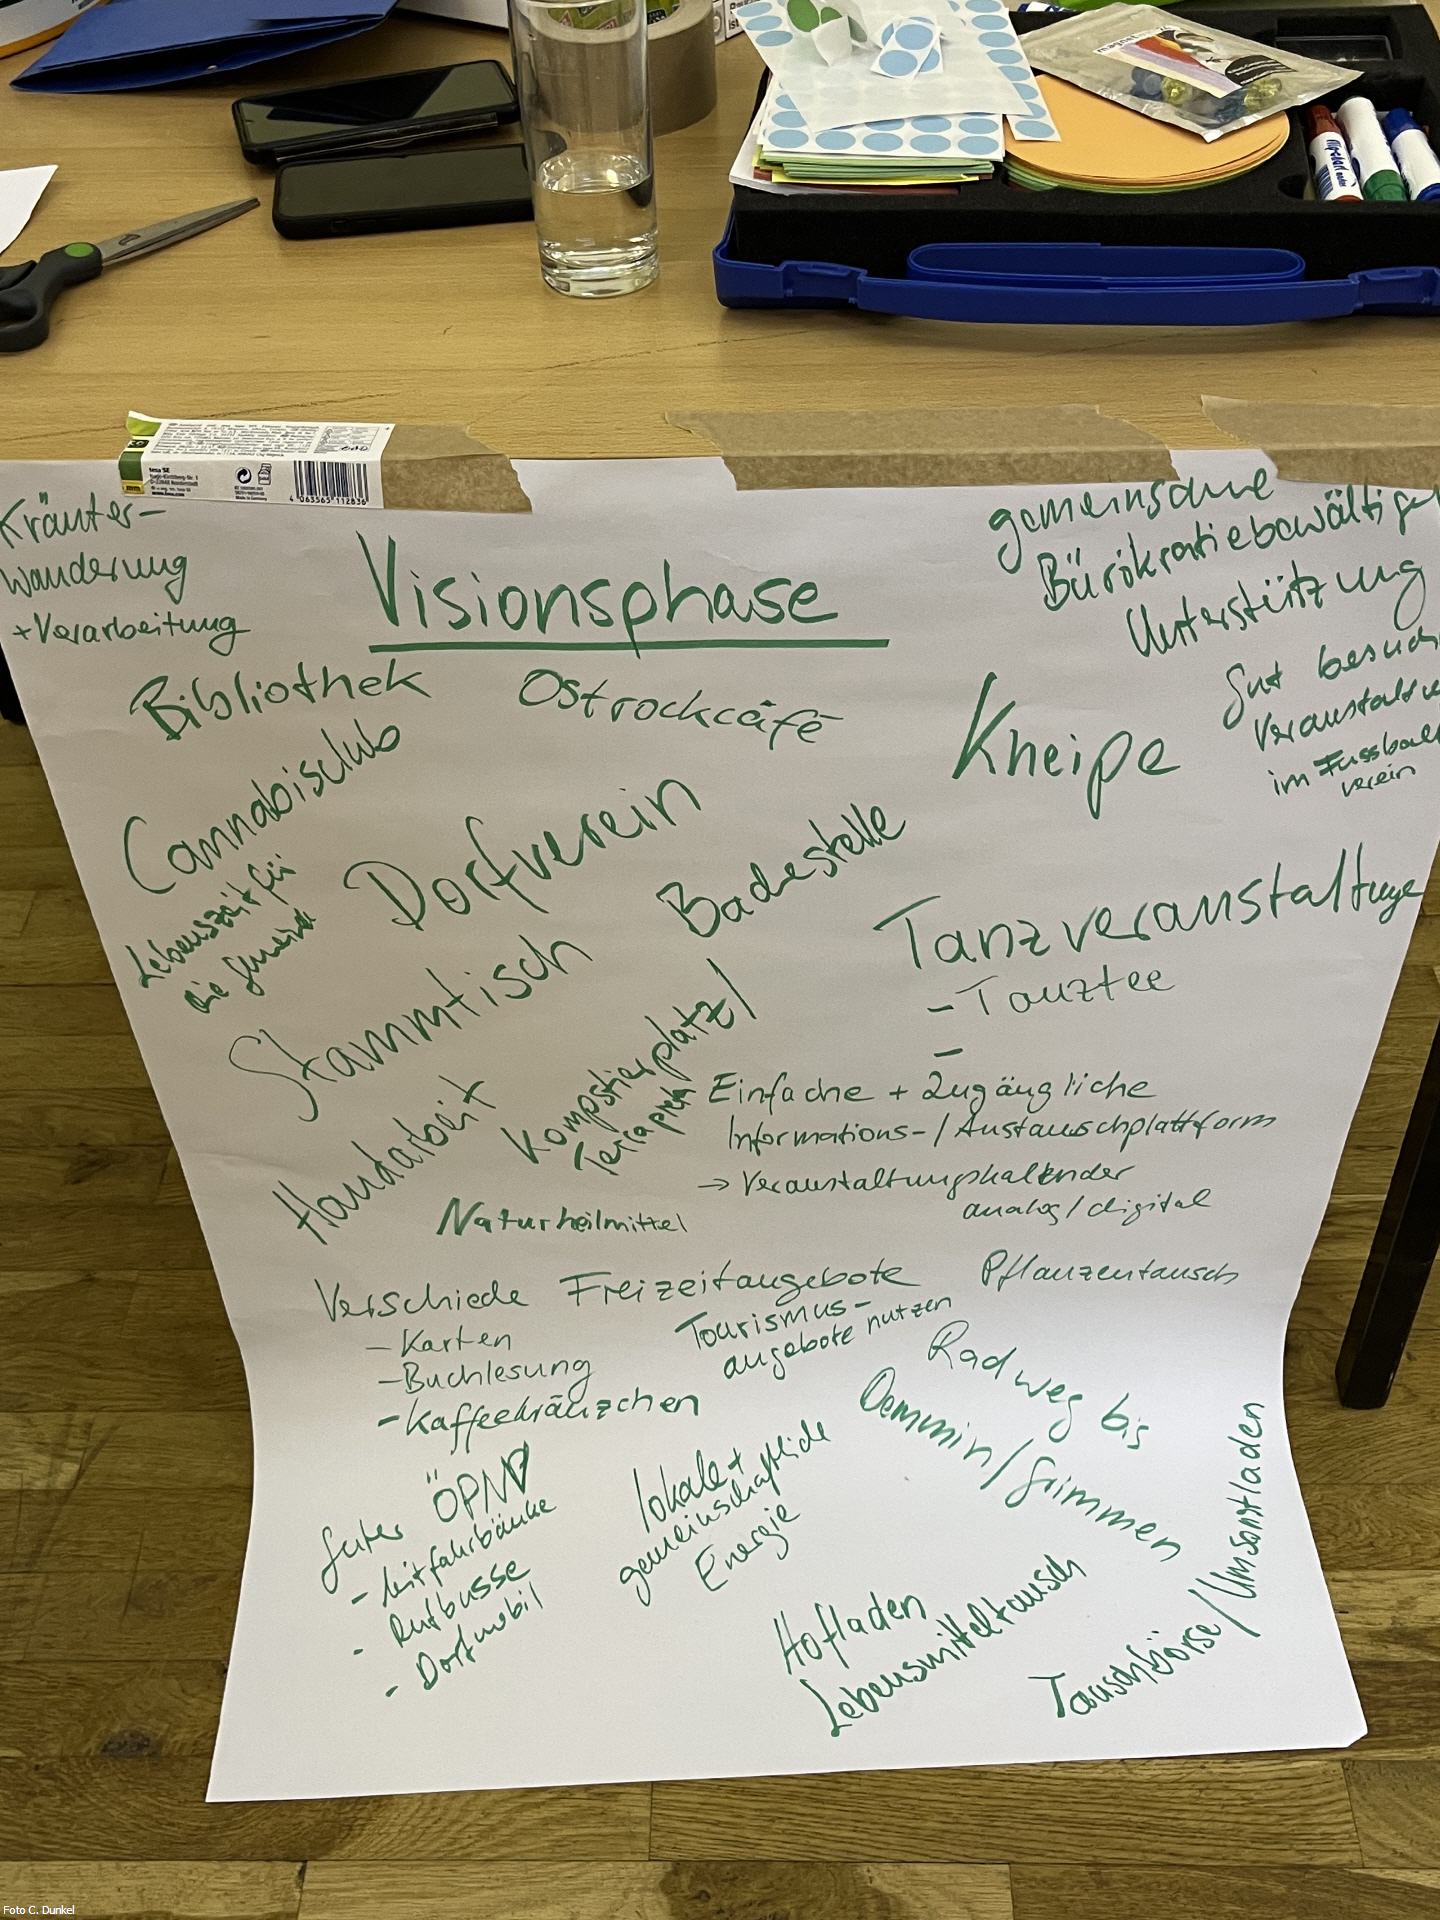 tesa SE
4 063565 112836
Kräuter-
wanderung
+Verarbeitung
Visionsphase
gemeinsame
Bürökratiebewältigu
Unterstützung
Bibliothek
Ostrockcafé
Kneipe
Gut besuch
Veranstaltu
im Fussball
verein
Cannabisclub
Lebenszeit für
die Gemeind
Dorfverein
Badestelle
Tanzveranstaltunge
- Tanztee
-
Stammtisch
Handarbeit
Kompstierplatz/
Terrapreta
Einfache + Zugängliche
Informations-/Austauschplattform
→ Veranstaltungskalender
analog/digital
Naturheilmittel
Verschiede Freizeitangebote
- Karten
- Buchlesung
- Kaffeekränzchen
Pflanzentausch
Tourismus-
angebote nutzen
Radweg bis
Demmin/Grimmen
Guter ÖPNV
- Mitfahrbänke
- Rufbusse
- Dorfmobil
lokale +
gemeinschaftliche
Energie
Hofladen
Lebensmitteltausch
Tauschbörse/Umsonstladen
Foto C. Dunkel